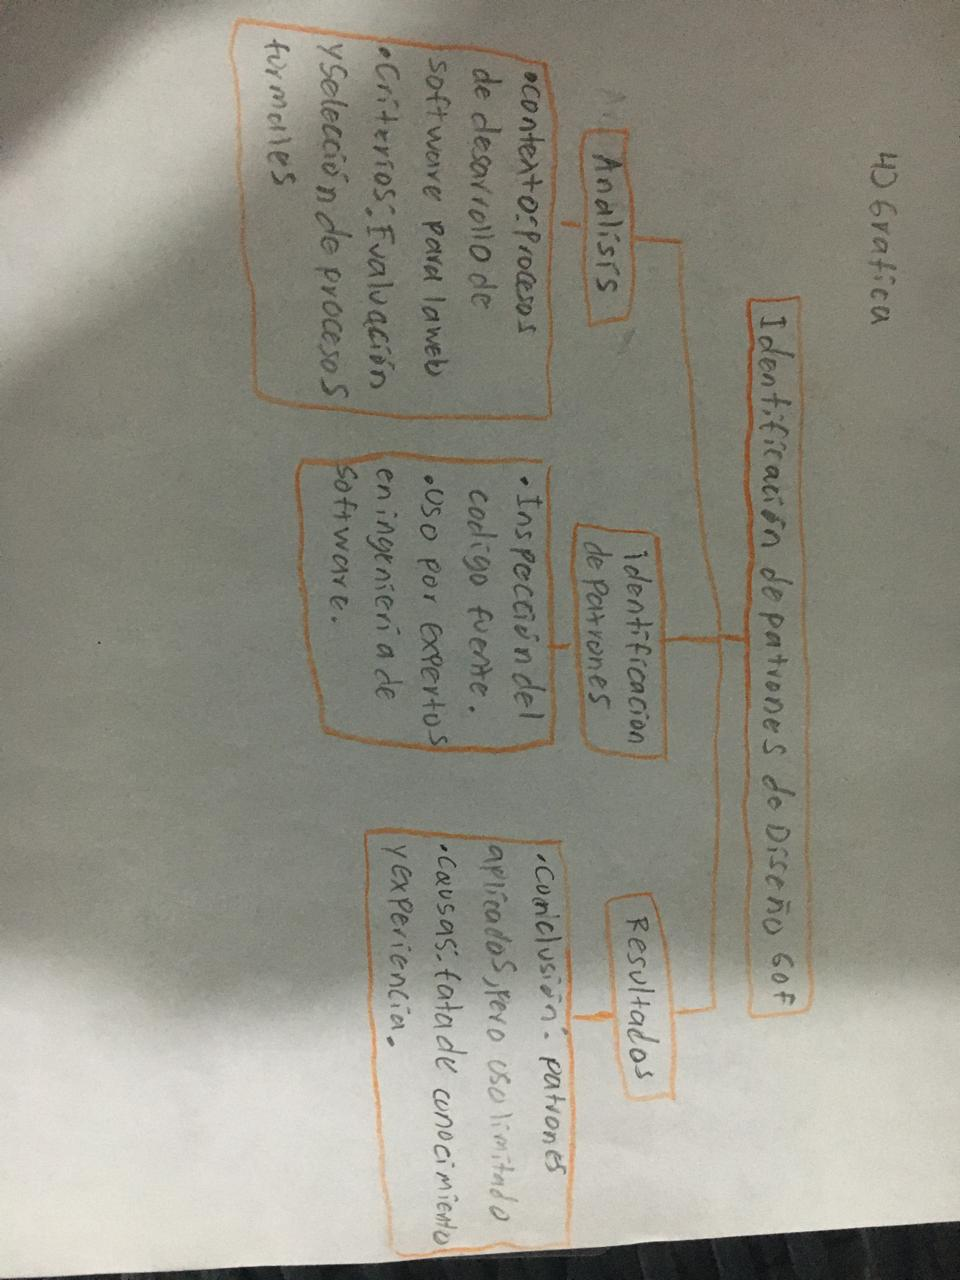 4) Grafica
Identificación de patrones de Diseño GOF
Analisis
• contexto: Procesos
de desarrollo de
software para la web
• Criterios: Evaluación
y Selección de procesos
formales
Identificacion
de patrones
• Inspección del
codigo fuente.
• Uso por expertos
en ingenieria de
software.
Resultados
• Conclusión: patrones
aplicados, pero uso limitado
• Causas: fata de conocimiento
y experiencia.